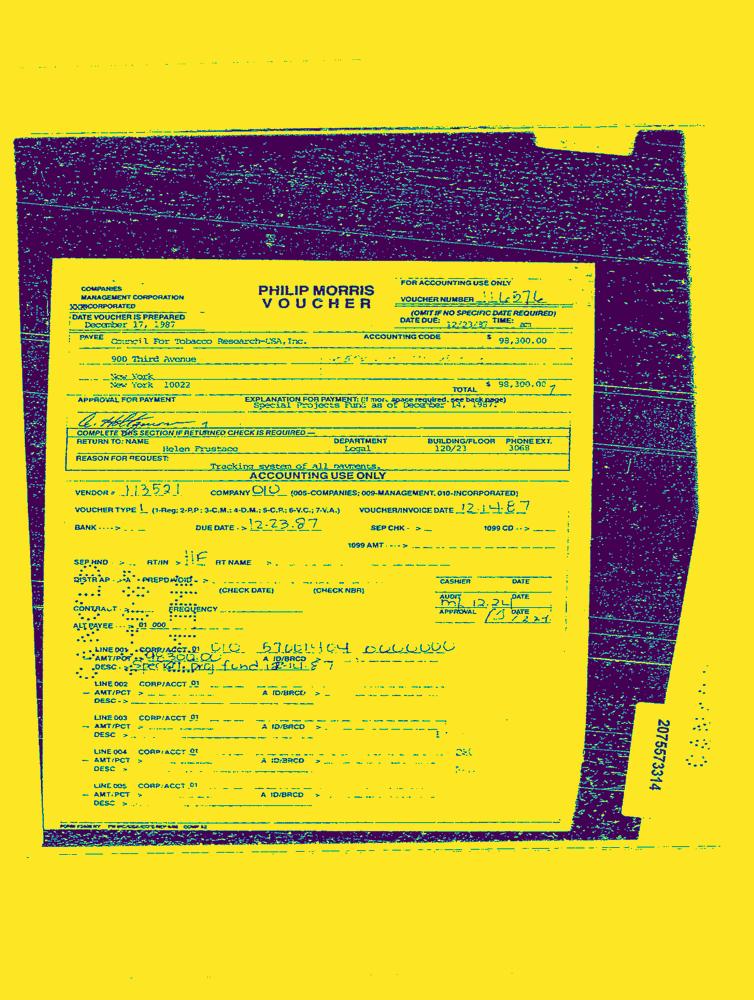 COMPANIES
MANAGEMENT CORPORATION
INCORPORATED
PHILIP MORRIS
VOUCHER
FOR ACCOUNTING USE ONLY
VOUCHER NUMBER 116576
(OMIT IF NO SPECIFIC DATE REQUIRED)
DATE VOUCHER IS PREPARED
December 17, 1987
DATE DUE: 12/23/87 TIME: am
PAYEE Council For Tobacco Research-USA, Inc. ACCOUNTING CODE $ 98,300.00
900 Third Avenue
New York
New York 10022
TOTAL $ 98,300.00
APPROVAL FOR PAYMENT EXPLANATION FOR PAYMENT: (If more space required, see back page)
Special Projects Fund as of December 14, 1987.
COMPLETE THIS SECTION IF RETURNED CHECK IS REQUIRED —
RETURN TO: NAME DEPARTMENT BUILDING/FLOOR PHONE EXT.
Helen Frustace Legal 120/23 3068
REASON FOR REQUEST:
Tracking system of all payments.
ACCOUNTING USE ONLY
VENDOR # 113521 COMPANY 010 (005-COMPANIES; 009-MANAGEMENT, 010-INCORPORATED)
VOUCHER TYPE 1 (1-Reg; 2-P.P; 3-C.M.; 4-D.M.; 5-C.P.; 6-V.C.; 7-V.A.) VOUCHER/INVOICE DATE 12.14.87
BANK ----> DUE DATE -> 12.23.87 SEP CHK - > 1099 CD -->
1099 AMT ---->
SEP HND > RT/IN > HF RT NAME >
DISTR AP PREPD/VOID
(CHECK DATE) (CHECK NBR)
CASHIER DATE
AUDIT DATE
APPROVAL DATE
CONTRACT FREQUENCY
ALT PAYEE 01 000
LINE 001 CORP/ACCT 01 010 57001404 0000000
AMT/PCT > 98300.00 A ID/BRCD >
DESC > Special proj fund 12-14-87
LINE 002 CORP/ACCT 01
AMT/PCT > A ID/BRCD >
DESC ->
LINE 003 CORP/ACCT 01
AMT/PCT > A ID/BRCD >
DESC >
LINE 004 CORP/ACCT 01
AMT/PCT > A ID/BRCD >
DESC >
LINE 005 CORP/ACCT 01
AMT/PCT > A ID/BRCD >
DESC >
2075573314